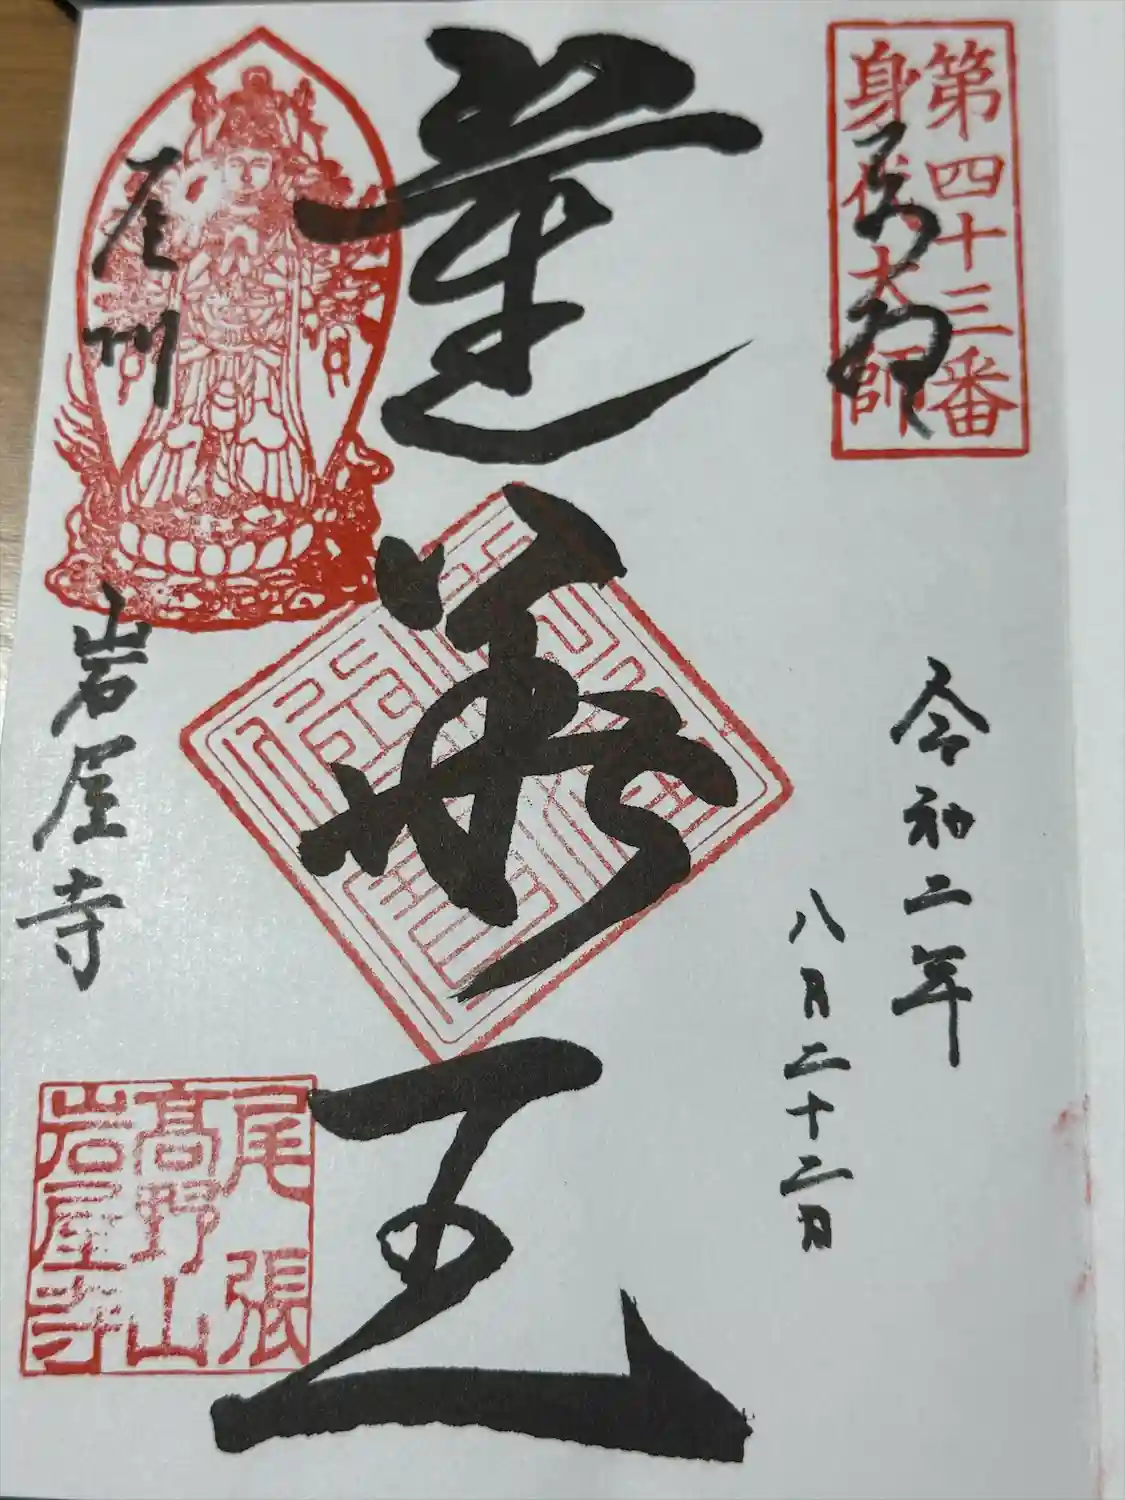 第四十三番
身代大師
奉拝
令和二年
八月二十二日
蓮華王
尾州
岩屋寺
尾張
高野山
岩屋寺